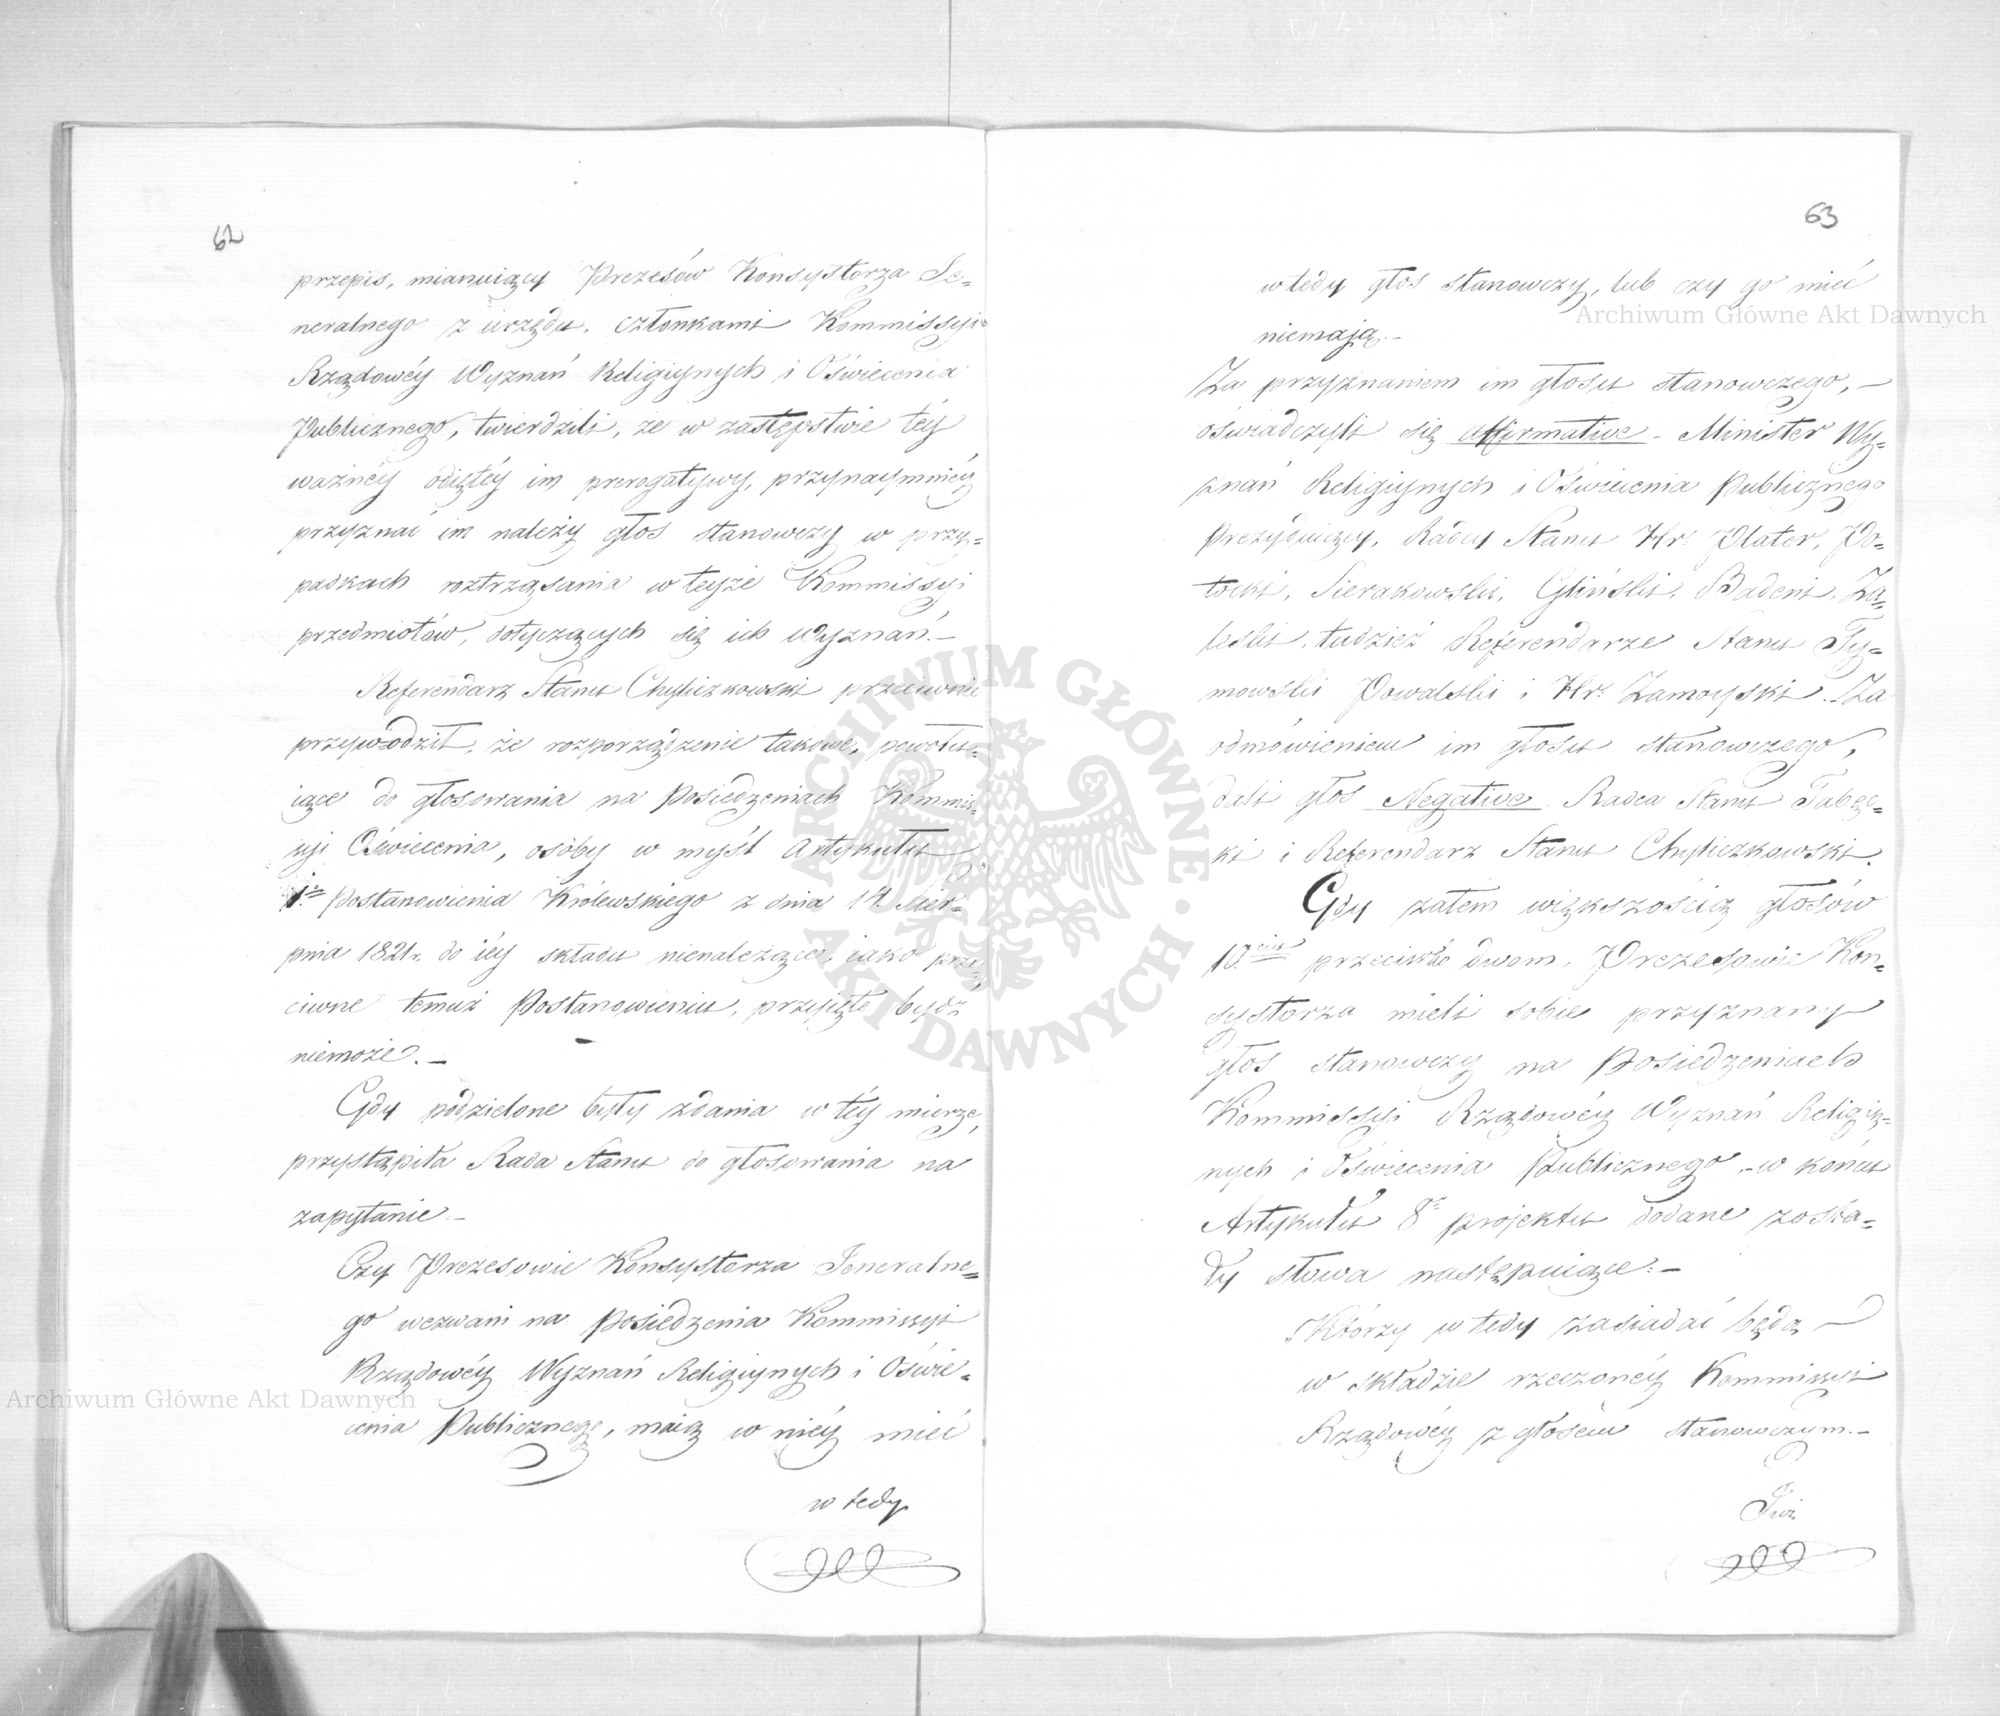 62
przepis, mianuiący Prezesów Konsystorza Je=
neralnego z urzędu, członkami Kommissyi
Rządowéy Wyznań Religiynych i Oświecenia
Publicznego, twierdzili, że w zastępstwie téy
ważnéy odiętéy im prerogatywy, przynaymniéy
przyznać im należy głos stanowczy w przy=
padkach roztrząsania w teyże Kommissyi
przedmiotów, dotyczących się ich Wyznań.–
Referendarz Stanu Chyliczkowski przeciwnie
przywodził, że rozporządzenie takowe, powołu=
iące do głosowania na Posiedzeniach Kommis=
syi Oświecenia, osóby w myśl Artykułu
1º Postanowienia Królewskiego z dnia 14. Sier=
pnia 1821 r. do iéy składu nienależące, iako prze=
ciwne temuż Postanowieniu, przyięte bydź
niemoże.–
Gdy podzielone były zdania w téy mierze,
przystąpiła Rada Stanu do głosowania na
zapytanie–
Czy Prezesowie Konsystorza Jeneralne=
go wezwani na Posiedzenia Kommissyi
Rządowéy Wyznań Religiynych i Oświe=
cenia Publicznego, maią w niéy mieć
w tedy
63
w tedy głos stanowczy, lub czy go mieć
niemają.–
Za przyznaniem im głosu stanowczego,–
oświadczyli się affirmative – Minister Wy=
znań Religiynych i Oświecenia Publicznego
Prezyduiący, Radcy Stanu Hr. Plater, Po=
tocki, Sierakowski, Gliński, Badeni, Za=
leski, tudzież Referendarze Stanu Ty=
mowski Powalski i Hr. Zamoyski.–Za
odmówieniem im głosu stanowczego,
dali głos Negative Radca Stanu Tabęc=
ki i Referendarz Stanu Chyliczkowski.
Gdy zatém większością głosów
10.ciu przeciwko dwom, Prezesowie Kon=
systorza mieli sobie przyznany
głos stanowczy na Posiedzeniach
Kommissyi Rządowéy Wyznań Religiy=
nych i Oświecenia Publicznego,–w końcu
Artykułu 8º projektu dodane zosta=
ły słowa następuiące:–
„Którzy w tedy zasiadać będą –
w składzie rzeczonéy Kommissyi
Rządowéy z głosem stanowczym.–
Już
Archiwum Główne Akt Dawnych
Archiwum Główne Akt Dawnych
ARCHIWUM GŁÓWNE AKT DAWNYCH